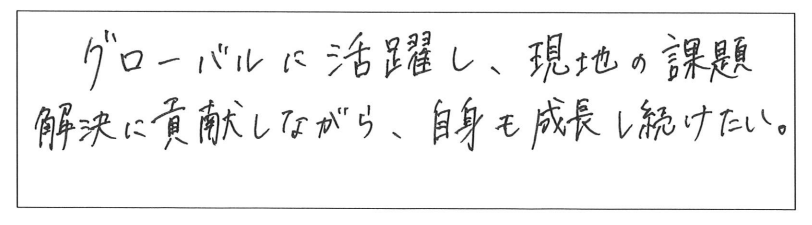 グローバルに活躍し、現地の課題
解決に貢献しながら、自身も成長し続けたい。